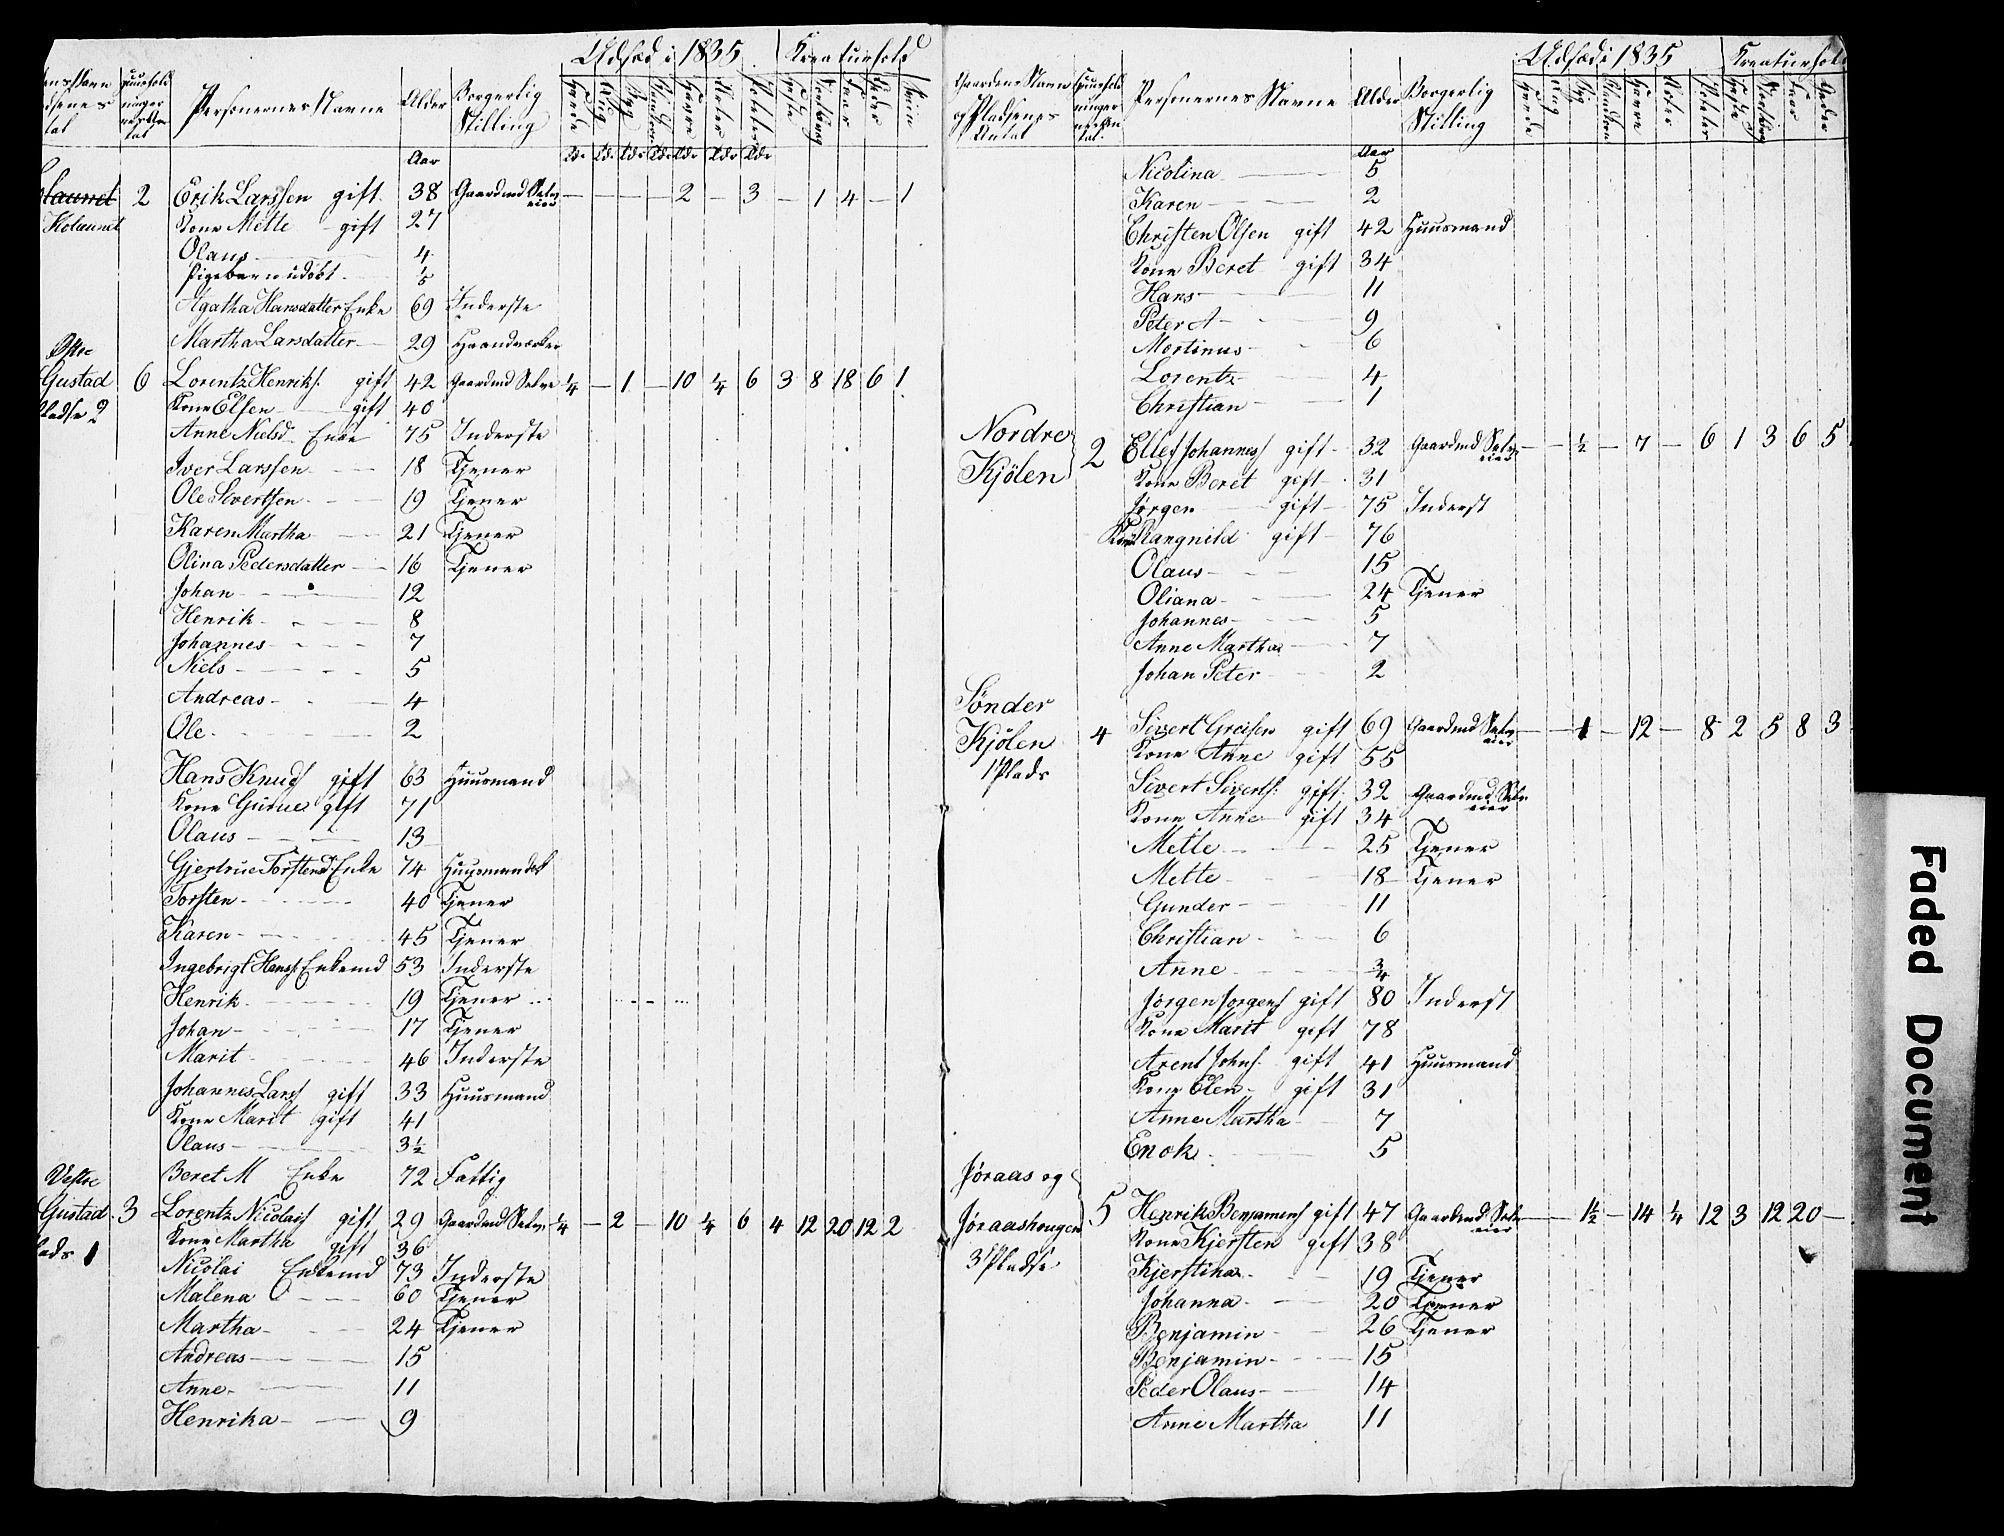 Udsæd i 1835 Kreaturhold
Personernes Navne Alder Borgerlig Stilling Hvede Rug Byg Havre Erter Poteter Heste Faar Geder Sviin
Aar Tdr Tdr Tdr Tdr Tdr Tdr Tdr
2 Erik Larssen gift 38 Gaardmd Selveier - - - - 2 - 3 - 1 4 - 1
Kolaunet Kone Mette gift 27
Olaus 4
Pigebarn udöbt 1/5
Agatha Hansdatter Enke 69 Inderste
Martha Larsdatter 29 Haandværker
Østre
Gustad 6 Lorentz Henriks: gift 42 Gaardmd Selve 1/4 - 1 - 10 1/4 6 3 8 18 6 1
Pladse 2 Kone Elsen gift 40
Anne Nielsd Enke 75 Inderste
Iver Larssen 18 Tjener
Ole Sivertsen 19 Tjener
Karen Martha 21 Tjener
Olina Pedersdatter 16 Tjener
Johan 12
Henrik 8
Johannes 7
Niels 5
Andreas 4
Ole 2
Hans Knuds gift 63 Huusmand
Kone Gurue gift 71
Olaus 13
Gjertrue Torstensd Enke 74 Huusmandsk
Torsten 40 Tjener
Karen 45 Tjener
Ingebrigt Hanss Enkemd 53 Inderste
Henrik 19 Tjener
Johan 17 Tjener
Marit 46 Inderste
Johannes Lars gift 33 Huusmand
Kone Marit gift 41
Olaus 3 1/2
Vestre Beret M Enke 72 Fattig
Gustad 3 Lorentz Nicolais gift 29 Gaardmd Selv 1/4 - 2 - 10 1/4 6 4 12 20 12 2
Plads 1 Kone Martha gift 36
Nicolai Enkemd 73 Inderste
Malena 60 Tjener
Martha 24 Tjener
Andreas 15
Anne 11
Henrika 9
Udsæd i 1835 Kreaturhold
Gaardenes Navne og Pladsenes Antal Personernes Navne Alder Borgerlig Stilling Hvede Rug Byg Havre Erter Poteter Heste Faar Geder
Aar
Nicolina 5
Karen 2
Christen Olsen gift 42 Huusmand
Kone Beret gift 34
Hans 11
Peter A 9
Mortinus 6
Lorentz 4
Christian 1
Nordre Kjölen 2 Ellef Johannes gift 32 Gaardmd Selveier - - 1/2 - 7 - 6 1 3 6 5
Kone Beret gift 31
Jørgen gift 75 Inderst
Kone Rangnild gift 76
Olaus 15
Oliana 24 Tjener
Johannes 5
Anne Martha 7
Johan Peter 2
Sønder
Kjölen 4 Sivert Greisen gift 69 Gaardmd Selveier - - 1 - 12 - 8 2 5 8 3
1 Plads Kone Anne gift 55
Sivert Siverts: gift 32 Gaardmd Selveier
Kone Anne gift 34
Mette 25 Tjener
Mette 18 Tjener
Gunder 11
Christian 6
Anne 3/4
Jørgen Jørgens gift 80 Inderst
Kone Marit gift 78
Arent Johns: gift 41 Huusmand
Kone Elen gift 31
Anne Martha 7
Enok 5
Jøraas og
Jøraashougen 5 Henrik Benjamins gift 47 Gaardmd Selveier - - 1 1/2 - 14 1/4 12 3 12 20 -
3 Pladse Kone Kjersten gift 38
Kjerstina 19 Tjener
Johanna 20 Tjener
Benjamin 26 Tjener
Benjamin 15
Peder Olaus 14
Anne Martha 11
Faded Document